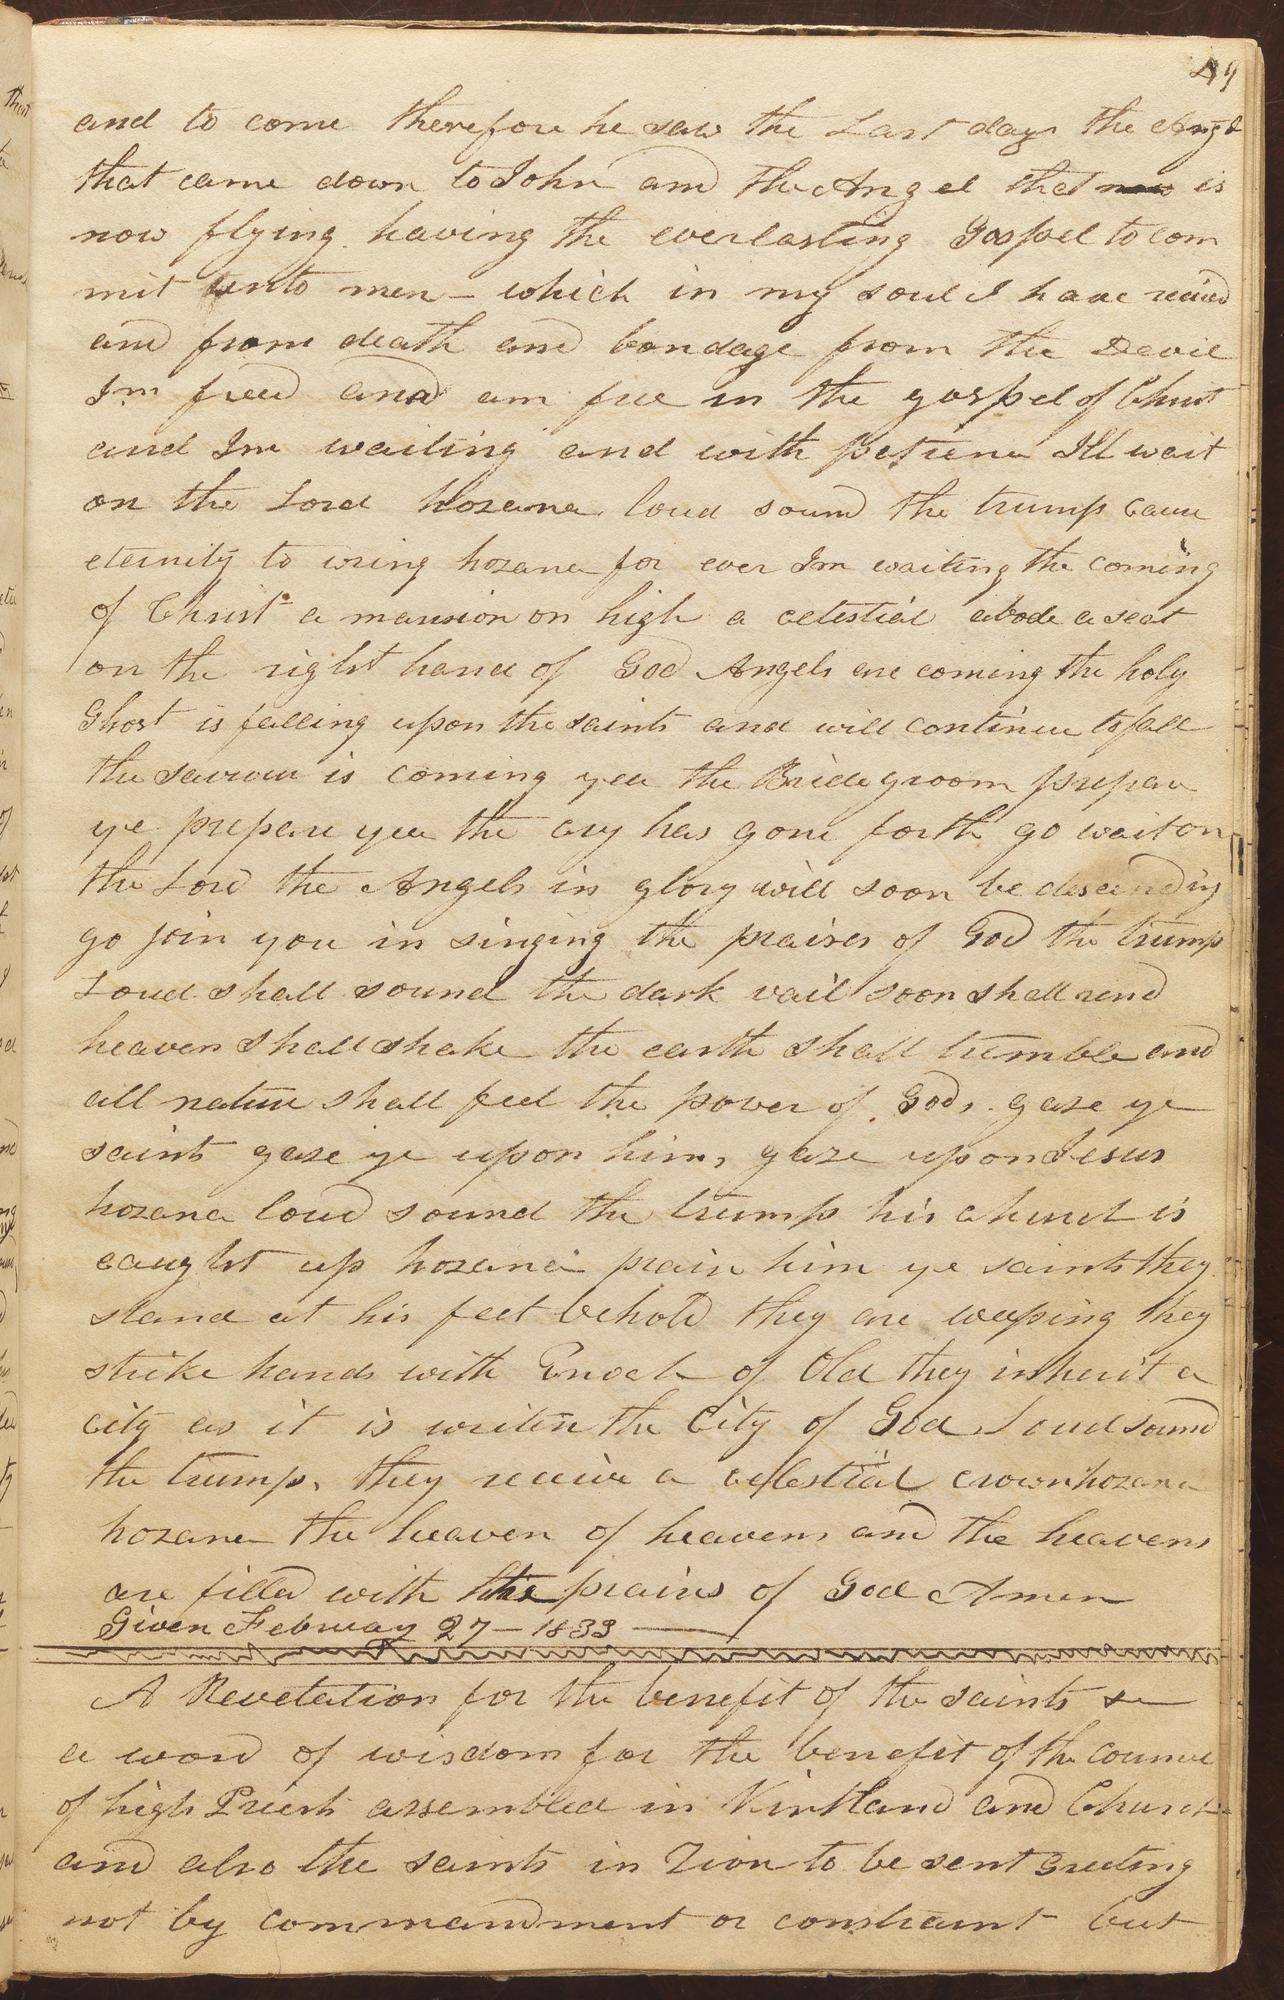 49
and to come therefore he saw the Last days the Angel
that came down to John and the Angel that now is
now flying having the everlasting Gospel to com
mit unto men – which in my soul I have recieved
and from death and bondage from the Devil
Im freed and am free in the gospel of Christ
and Im waiting and with patiene Ill wait
on the Lord hozana loud sound the trump cause
eternity to wring hozana for ever Im waiting the coming
of Christ a mansion on high a celestial abode a seat
on the right hand of God Angels are coming the holy
Ghost is falling upon the saints and will continue to fall
the saviour is coming yea the Bridegroom prepare
ye prepare yea the cry has gone forth go wait on
the Lord the Angels in glory will soon be descending
go join you in singing the praises of God the trump
Loud shall sound the dark vail soon shall rend
heaven shall shake the earth shall tremble and
all nature shall feel the power of God, gaze ye
saints gaze ye upon him, gaze upon Jesus
hozana loud sound the trump his church is
caught up hozana praise him ye saints they
stand at his feet behold they are weeping they
strike hands with Enoch of Old they inherit a
city as it is writen the City of God, Loud sound
the trump, they receive a celestial crown hozana
hozana the heaven of heavens and the heavens
are filled with the praises of God Amen
Given February 27 – 1833
A Revelation for the benefit of the saints &c
a word of wisdom for the benefit of the council
of high Priests assembled in Kirtland and Church
and also the saints in Zion to be sent Greeting
not by commandment or constraint but